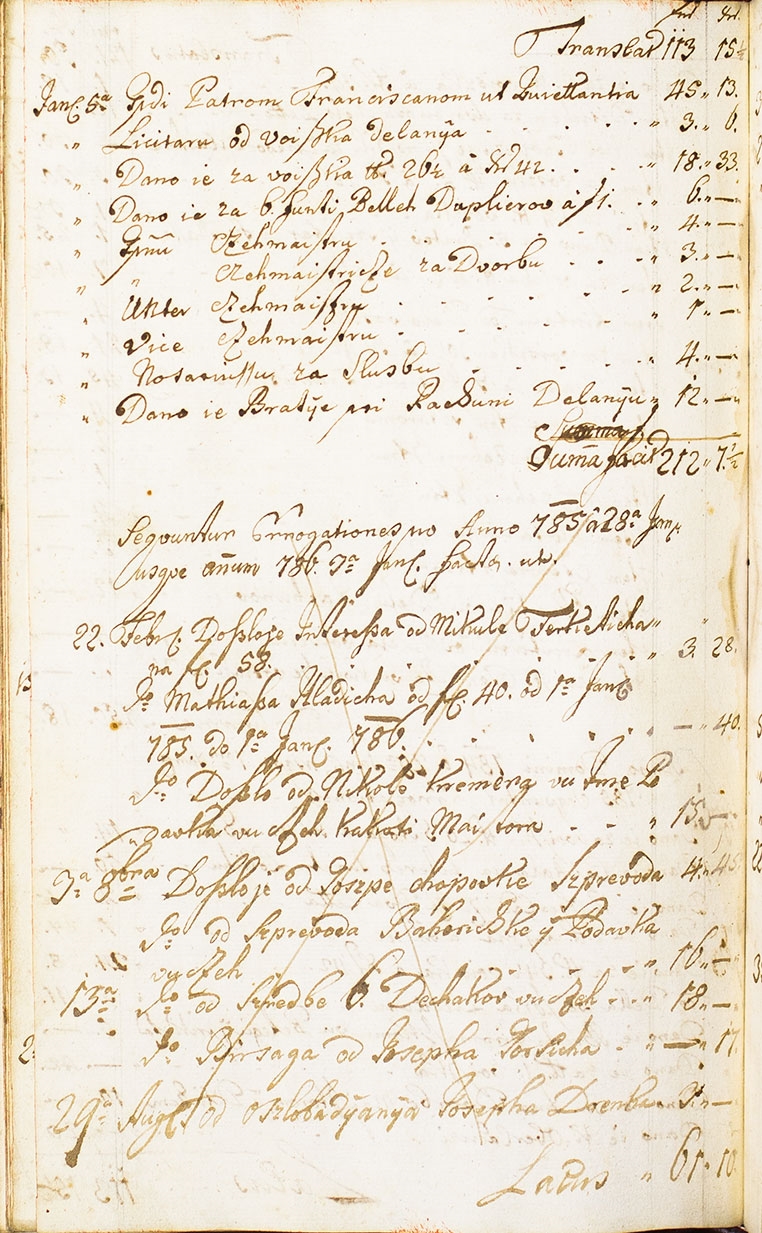 Translat 113 15
Janr. 5a Gpdi Patrom Franciscanom ut Quiettantia 45 „ 13.
„ Licitaru od voißka delanÿa „ 3. „ 6.
„ Dano ie za voißka 26½ à Xr 42. „ 18. „ 33.
„ Dano ie za 6. funti Belleh Duplierov à f 1. „ 6. „ —
„ Gpnu Czehmaistru „ 4. „ —
„ „ Czehmaistricze za Dvorbu „ 3. „ —
„ Unter Czehmaistru „ 2. „ —
„ Vice Czehmaistru „ 1 „ —
„ Notariussu za Slusbu „ 4. „ —
„ Dano ie Bratÿe pri Rachuni Delanÿu „ 12 „ —
Suma facit 212 „ 7½
Seqvuntur Errogationes Anno 785 à 28a Janr.
usqve anum 786. 7a Janr. facta. ut.
22. Febr. Doßloje Interessa od Mikule „
na f. 58. „ 3. 28.
Do Mathiaßa Hladicha od f. 40. od 1a Janr.
785. do 1a Janr. 786. — „ 40.
Do Doßlo od Nikole kremera vu Ime Po
davka vu Czeh kakoti Maistora „ 15 „ —
7a 8bra Doßloje od Joszpe chopovke Szprevoda 4. „ 45
Do od Szprevoda Bakerichke ÿ Podavka
vu Czeh „ 16 „ —
13a Do od Szredbe 6. Dechakov vu Czeh „ 18 „ —
Do Birsaga od Josepha „ — „ 17.
29a Aug. od oszlobadÿanÿa Josepha 3 „ —
Latus „ 61 „ 10